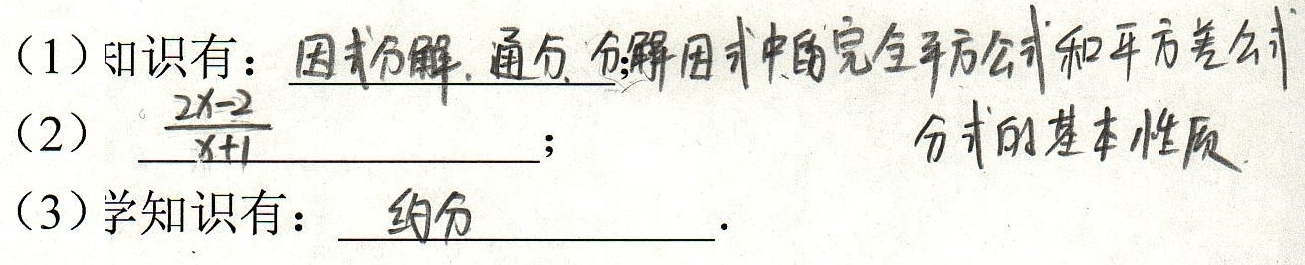 （1）知识有：因式分解、通分、分解因式中的完全平方公式和平方差公式
分式的基本性质.
（2）$\frac{2x-2}{x+1}$；
（3）学知识有：约分.